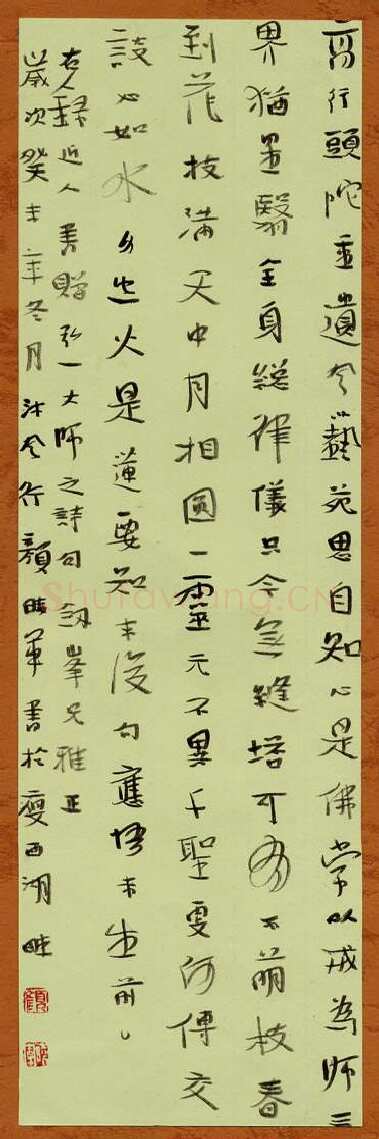 高行頭陀重遺藝苑思自知心是佛常以戒為師三
界猶塵翳全身總律儀只今無縫塔可有不萌枝春
到花枝滿天中月相圓一靈元不異千聖更何傳交
談心如水身空火是蓮要知末後句應悟未生前
錄近人書贈弘一大師之詩句劍峯兄雅正
歲次癸未年冬月書於瘦西湖畔
Shufawang.CN